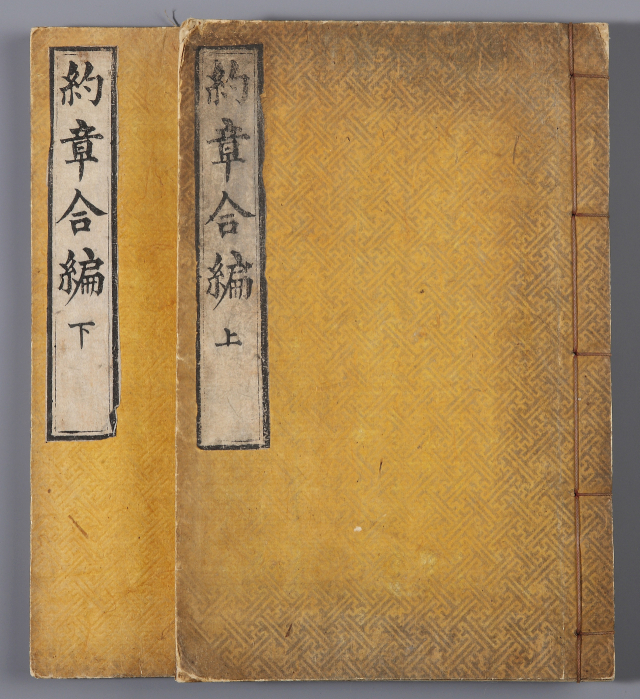 約章合編 上
約章合編 下